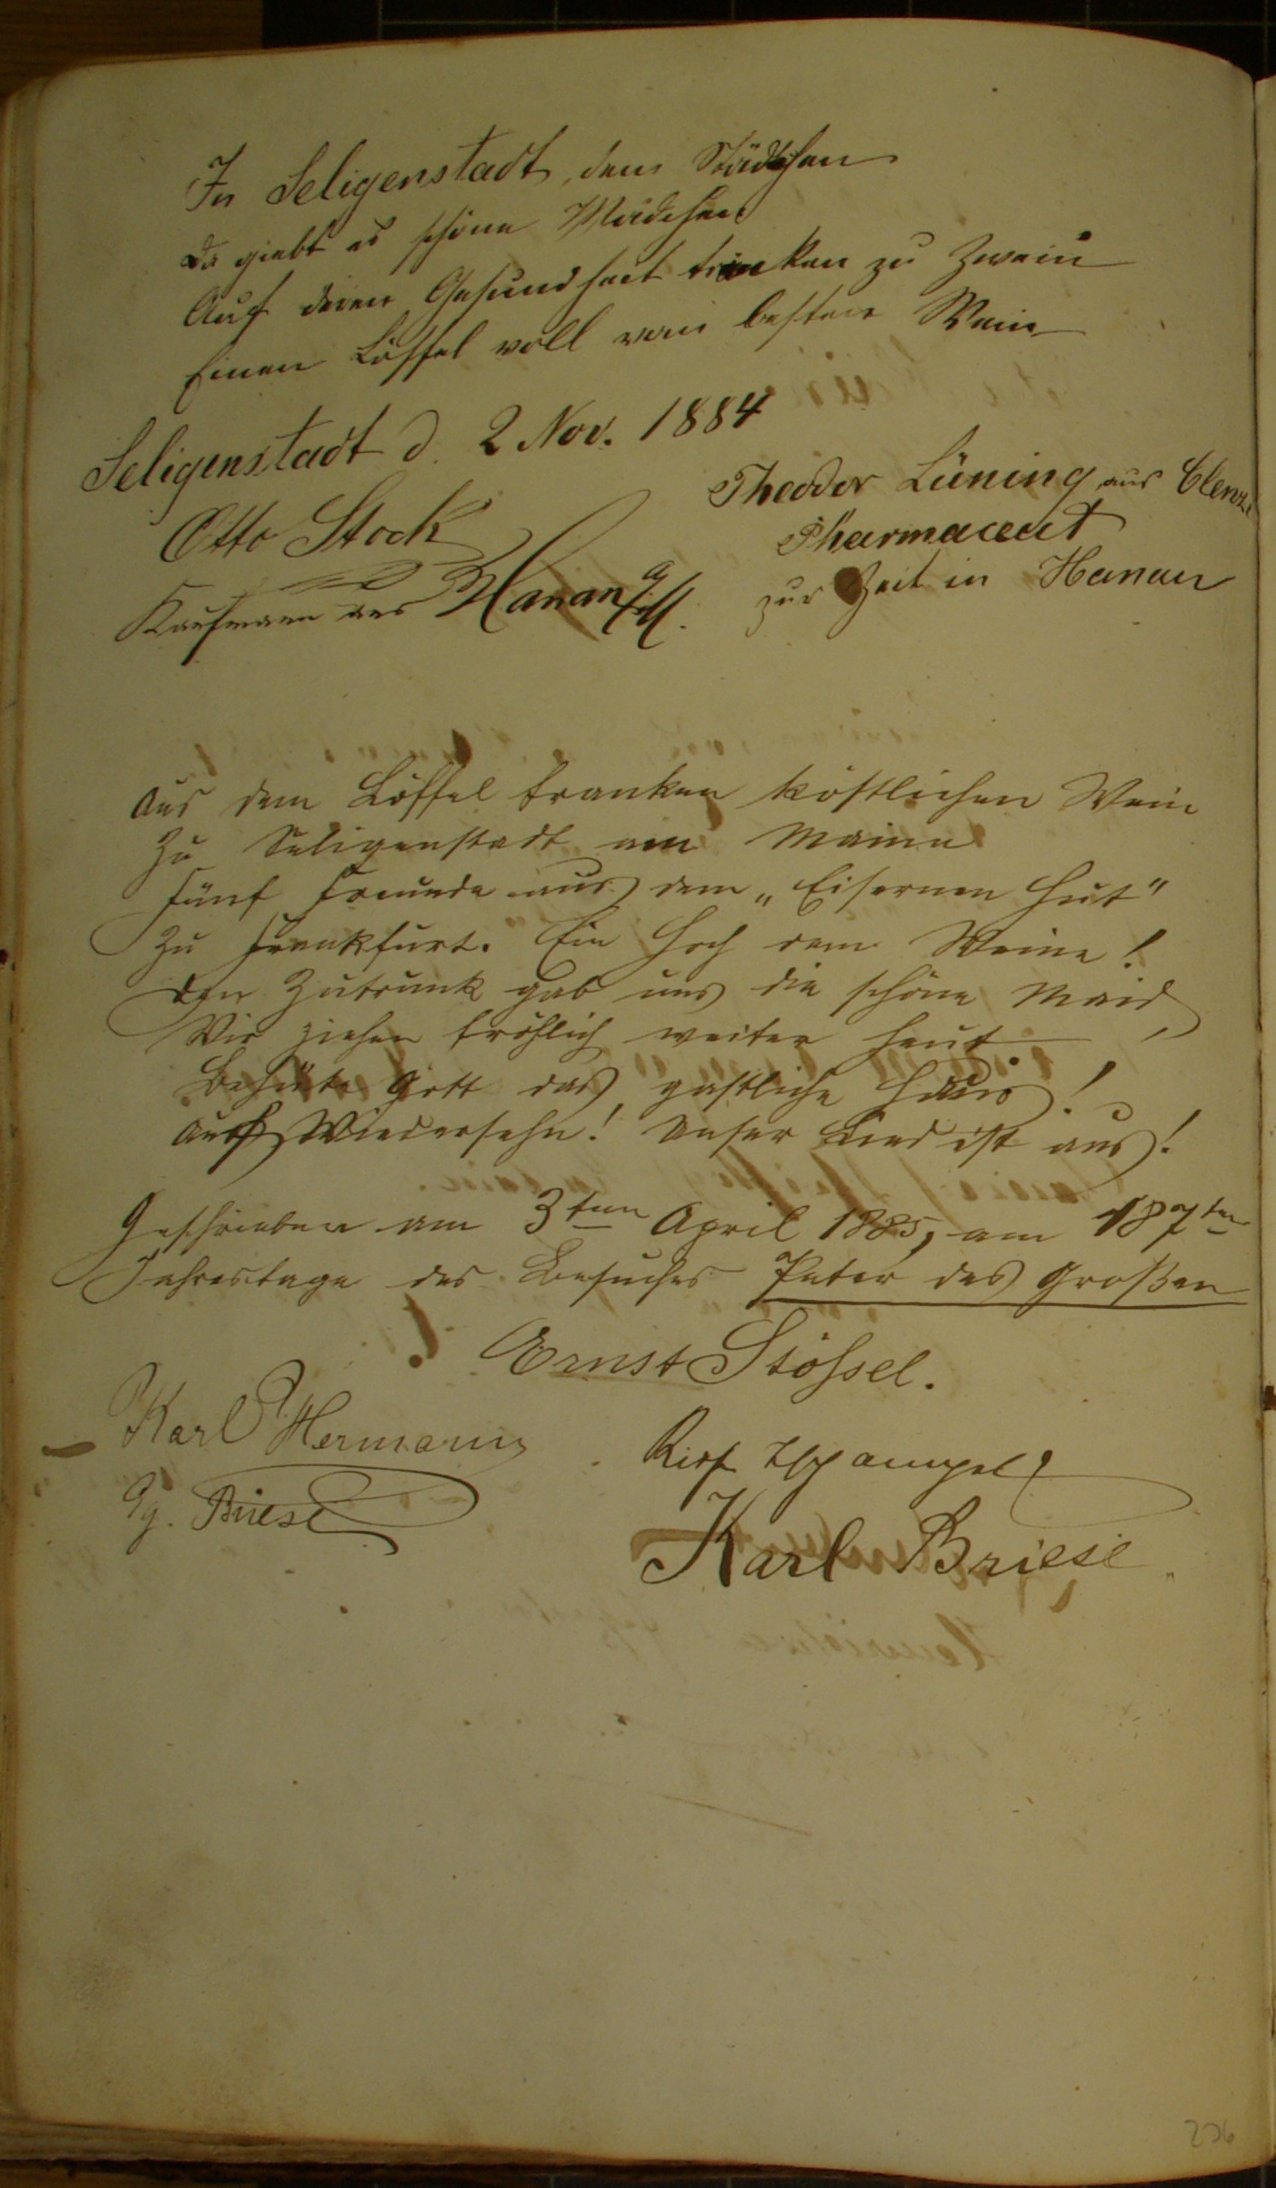 In Seligenstadt, dem Städtchen
Da giebt es schöne Mädchen
Auf deren Gesundheit trinken zu Zwein
Einen Löffel voll vom besten Wein
Seligenstadt d. 2 Nov. 1884
Otto Stock
Kaufmann aus Hanau
Theodor Lüning aus Clenze
Pharmaceut
zur Zeit in Hanau
Aus dem Löffel tranken köstlichen Wein
Zu Seligenstadt am Maine
Fünf Freunde aus dem „Eisernen Hut"
Zu Frankfurt. Ein Hoch dem Weine!
Den Zutrunk gab uns die schöne Maid,
Wir ziehen fröhlich weiter heut
Behüte Gott das gastliche Haus!
Auf Wiedersehn! Unser Lied ist aus!
Geschrieben am 3ten April 1885, am 187ten
Jahrestage des Besuches Peter des Großen
Ernst Stössel.
Karl Hermann
Gg. Briese
Karl Briese
236